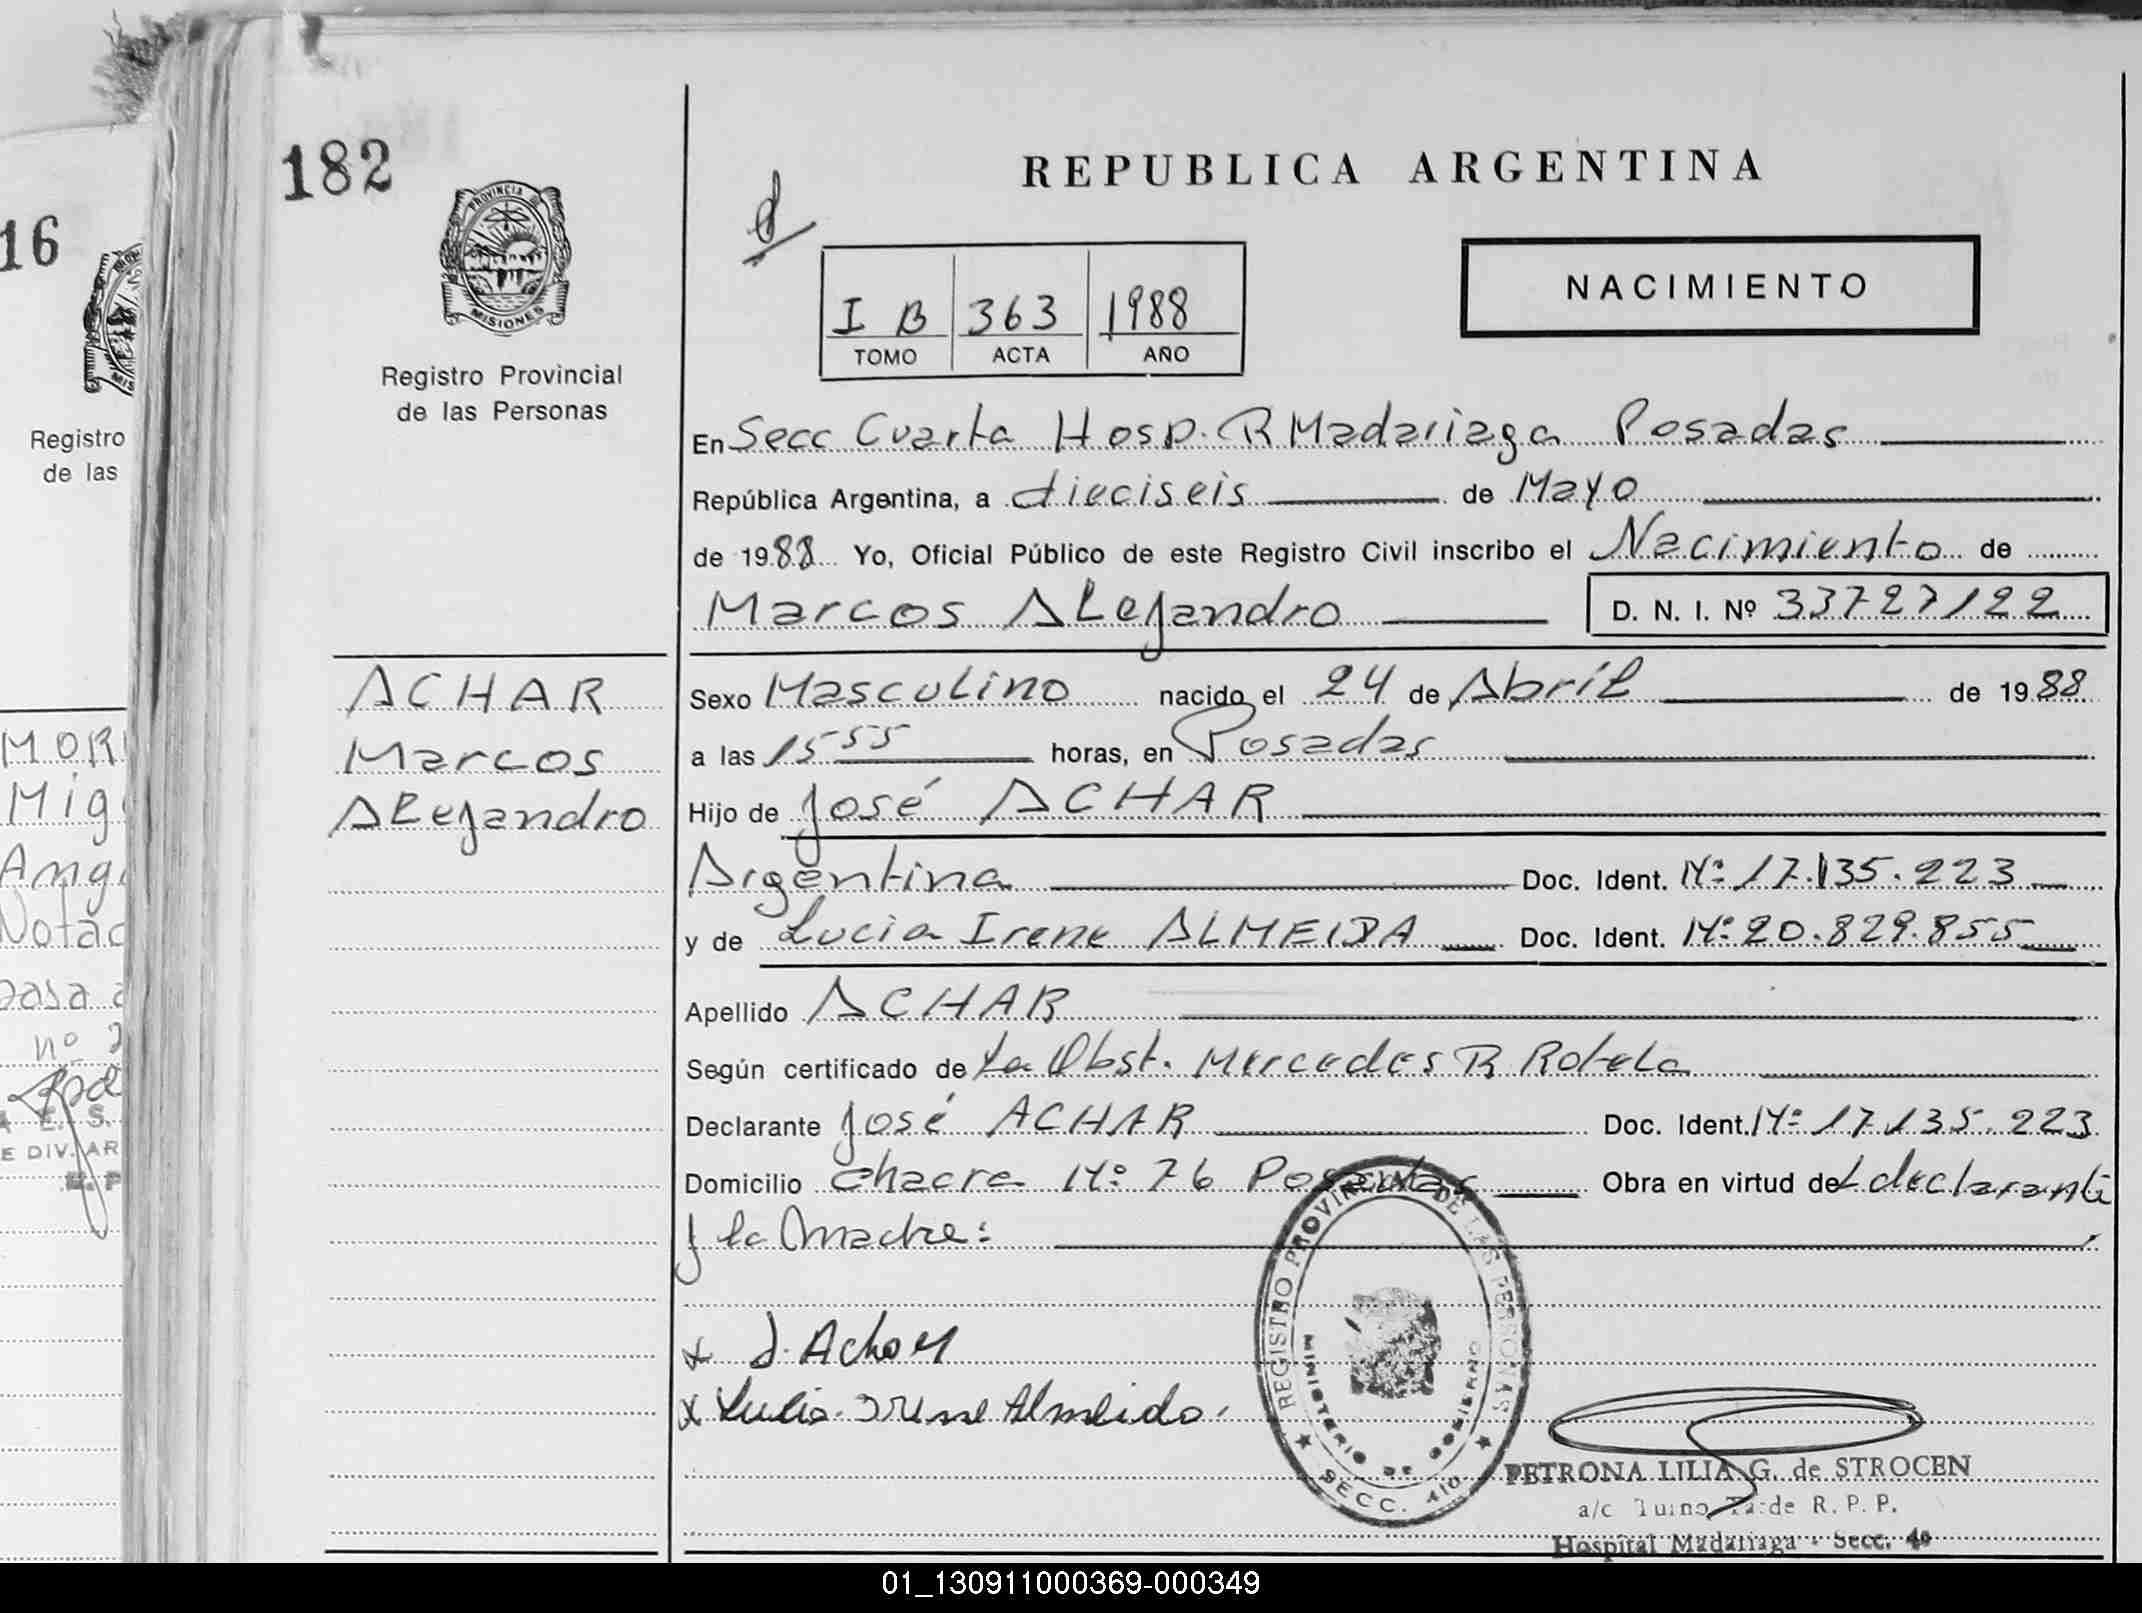 16
Registro
de las
182
PROVINCIA
MISIONES
Registro Provincial
de las Personas
ACHAR
Marcos
ALejandro
REPUBLICA ARGENTINA
NACIMIENTO
I B 363 1988
TOMO ACTA AÑO
En Secc Cuarta Hosp. R Madariaga Posadas
República Argentina, a dieciseis de Mayo
de 1988 Yo, Oficial Público de este Registro Civil inscribo el Nacimiento de
Marcos ALejandro D. N. I. Nº 33727122
Sexo Masculino nacido el 24 de Abril de 1988
a las 15 55 horas, en Posadas
Hijo de José ACHAR
Argentina Doc. Ident. Nº 17.135.223
y de Lucia Irene ALMEIDA Doc. Ident. Nº 20.829.855
Apellido ACHAR
Según certificado de La Obst. Mercedes R Rotela
Declarante José ACHAR Doc. Ident. Nº 17.135.223
Domicilio Chacra Nº 76 Posadas Obra en virtud del declarante
y la madre:
x J. Achar
x Lucia Irene Almeida.
REGISTRO PROVINCIAL DE LAS PERSONAS
MINISTERIO DE GOBIERNO
SECC. 4ta
PETRONA LILIA G. de STROCEN
a/c Turno Tarde R. P. P.
Hospital Madariaga - Secc. 4a
01_130911000369-000349